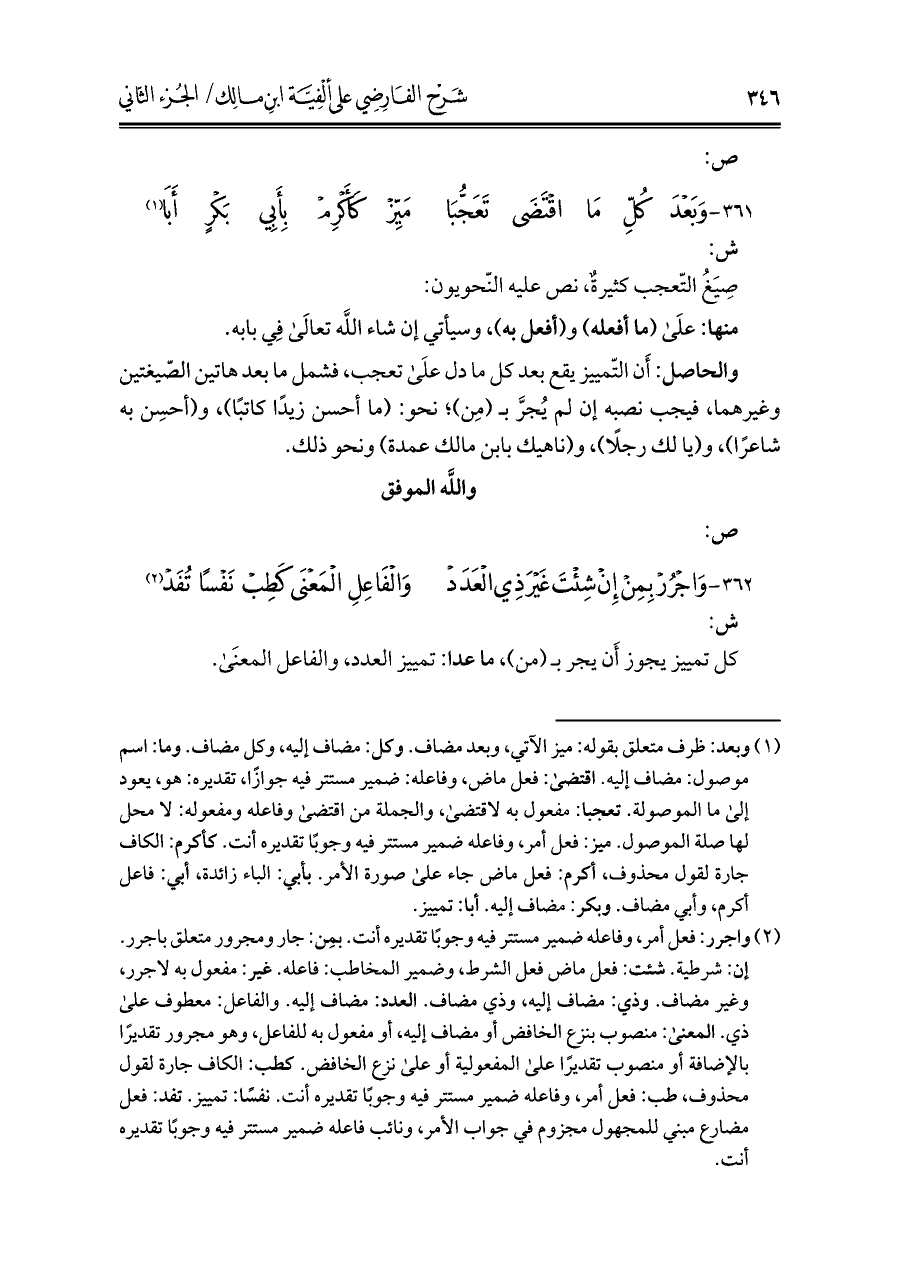 ٣٤٦ شَرْح الفَارِضِي عَلى ألْفِيَّة ابنِ مَالِك/ الجُزء الثاني
ص:
٣٦١-وَبَعْدَ كُلِّ مَا اقْتَضَى تَعَجُّبَا مَيِّزْ كَأَكْرِمْ بِأَبِي بَكْرٍ أَبَا(١)
ش:
صِيَغُ التّعجب كثيرةٌ، نص عليه النّحويون:
منها: علَىٰ (ما أفعله) و(أفعل به)، وسيأتي إن شاء اللَّه تعالَىٰ فِي بابه.
والحاصل: أَن التّمييز يقع بعد كل ما دل علَىٰ تعجب، فشمل ما بعد هاتين الصّيغتين
وغيرهما، فيجب نصبه إن لم يُجرَّ بـ (مِن)؛ نحو: (ما أحسن زيدًا كاتبًا)، و(أحسِن به
شاعرًا)، و(يا لك رجلًا)، و(ناهيك بابن مالك عمدة) ونحو ذلك.
واللَّه الموفق
ص:
٣٦٢-وَاجْرُرْ بِمِنْ إِنْ شِئْتَ غَيْرَ ذِي العَدَدْ وَالْفَاعِلِ الْمَعْنَى كَطِبْ نَفْسًا تُفَدْ(٢)
ش:
كل تمييز يجوز أَن يجر بـ (من)، ما عدا: تمييز العدد، والفاعل المعنَىٰ.
(١) وبعد: ظرف متعلق بقوله: ميز الآتي، وبعد مضاف. وكل: مضاف إليه، وكل مضاف. وما: اسم
موصول: مضاف إليه. اقتضىٰ: فعل ماض، وفاعله: ضمير مستتر فيه جوازًا، تقديره: هو، يعود
إلىٰ ما الموصولة. تعجبا: مفعول به لاقتضىٰ، والجملة من اقتضىٰ وفاعله ومفعوله: لا محل
لها صلة الموصول. ميز: فعل أمر، وفاعله ضمير مستتر فيه وجوبًا تقديره أنت. كأكرم: الكاف
جارة لقول محذوف، أكرم: فعل ماض جاء علىٰ صورة الأمر. بأبي: الباء زائدة، أبي: فاعل
أكرم، وأبي مضاف. وبكر: مضاف إليه. أبا: تمييز.
(٢) واجرر: فعل أمر، وفاعله ضمير مستتر فيه وجوبًا تقديره أنت. بمِن: جار ومجرور متعلق باجرر.
إن: شرطية. شئت: فعل ماض فعل الشرط، وضمير المخاطب: فاعله. غير: مفعول به لاجرر،
وغير مضاف. وذي: مضاف إليه، وذي مضاف. العدد: مضاف إليه. والفاعل: معطوف علىٰ
ذي. المعنىٰ: منصوب بنزع الخافض أو مضاف إليه، أو مفعول به للفاعل، وهو مجرور تقديرًا
بالإضافة أو منصوب تقديرًا علىٰ المفعولية أو علىٰ نزع الخافض. كطب: الكاف جارة لقول
محذوف، طب: فعل أمر، وفاعله ضمير مستتر فيه وجوبًا تقديره أنت. نفسًا: تمييز. تفد: فعل
مضارع مبني للمجهول مجزوم في جواب الأمر، ونائب فاعله ضمير مستتر فيه وجوبًا تقديره
أنت.